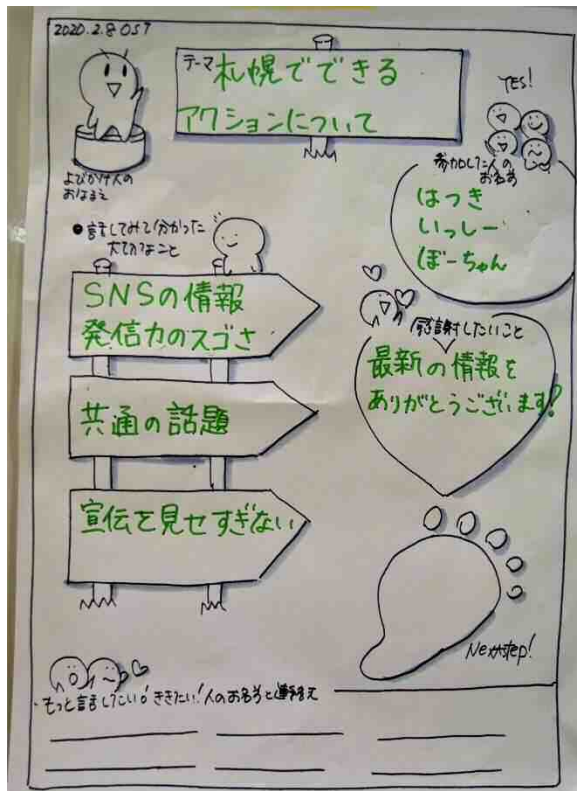 2020.2.8 OST
テーマ 札幌でできる
アクションについて
YES!
よびかけ人の
おなまえ
参加した人の
お名前
はつき
いっしー
ぼーちゃん
●話してみて分かった
大切なこと
SNSの情報
発信力のスゴさ
共通の話題
宣伝を見せすぎない
感謝したいこと
最新の情報を
ありがとうございます!
Next step!
もっと話したい!ききたい!人のお名前と連絡先